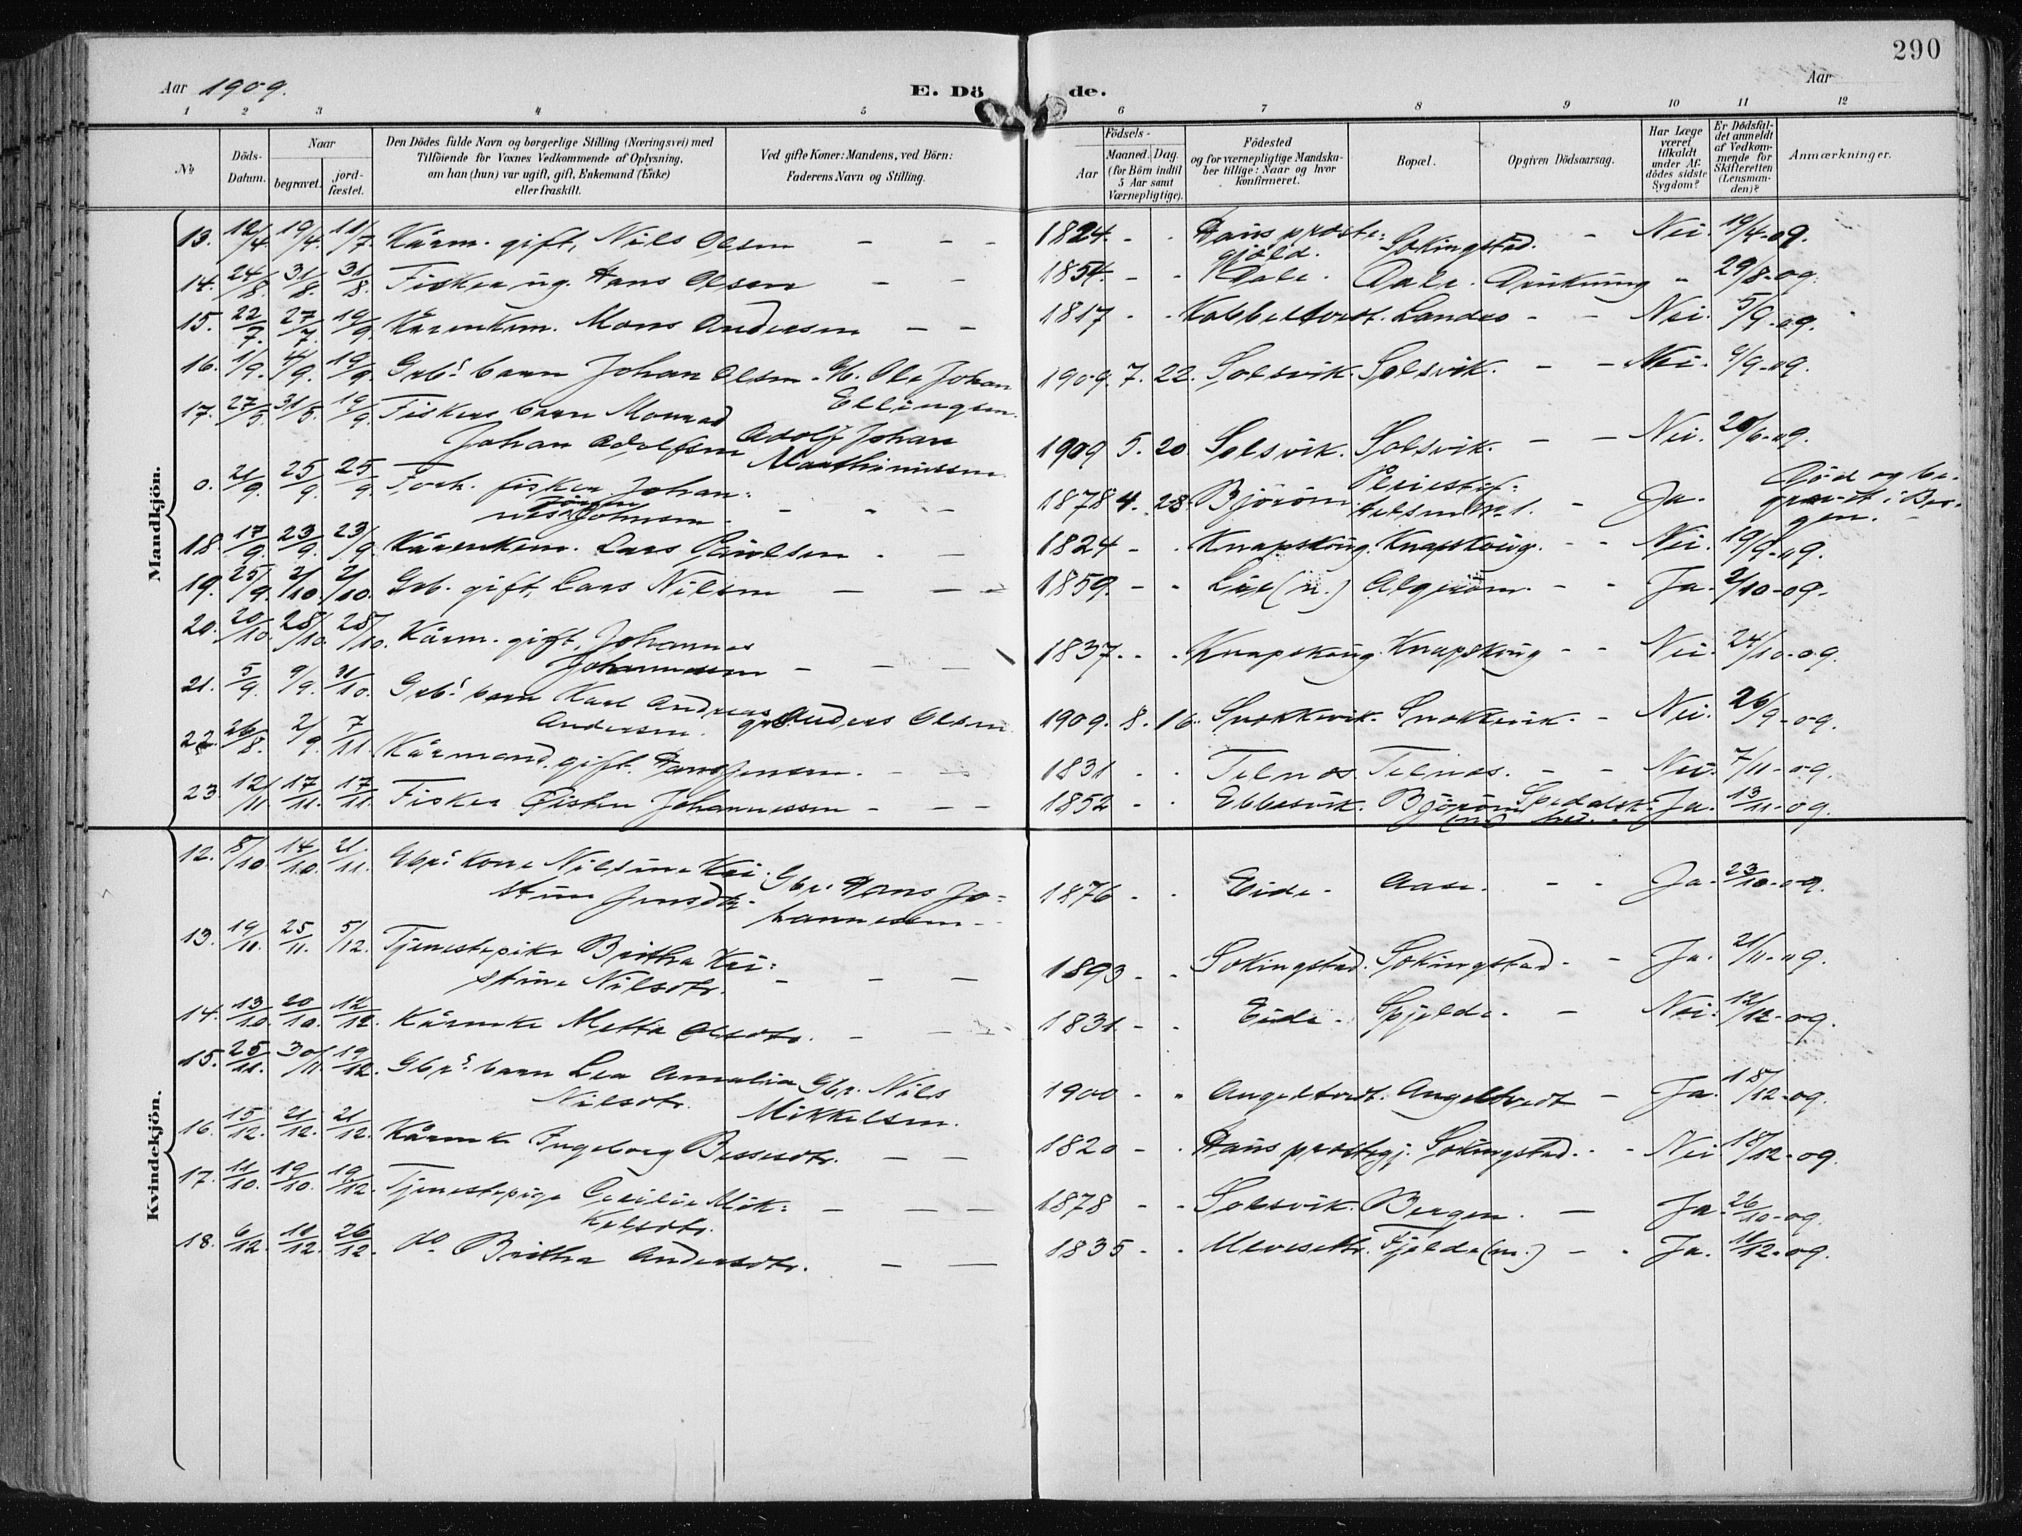 290
Aar 1909. E. Dö de. Aar
1 2 3 4 5 6 7 8 9 10 11 12
No
Döds-Datum.
Naar
begravet.
jord-fæstet.
Den Dödes fulde Navn og borgerlige Stilling (Næringsvei) med
Tilföiende for Voxnes Vedkommende af Oplysning,
om han (hun) var ugift, gift, Enkemand (Enke)
eller fraskilt.
Ved gifte Koner: Mandens, ved Börn:
Faderens Navn og Stilling.
Födsels-
Aar
Maaned. Dag.
(for Börn indtil
5 Aar samt
Værnepligtige).
Födested
og for værnepligtige Mandska-
ber tillige: Naar og hvor
konfirmeret.
Bopæl.
Opgiven Dödsaarsag.
Har Læge
været
tilkaldt
under Af-
dödes sidste
Sygdom?
Er Dödsfal-
det anmeldt
af Vedkom-
mende for
Skifteretten
(Lensman-
den)?
Anmærkninger.
Mandkjön.
13. 12/4 19/4 11/7 Kårm. gift, Nils Olsen — — — 1824. - - Haus præste- Sekingstad. - Nei. 19/4-09.
gjeld.
14. 24/8. 31/8. 31/8. Fisker ug. Hans Olsen — — 1854. - - Dale. Dale. Drukning " 29/8-09.
15. 22/7. 27/7. 19/9. Kårenkem. Mons Andersen — — 1817 - - Kobbeltvedt. Landro - - Nei. 5/9-09.
16. 1/9. 4/9. 19/9. Grbs. barn Johan Olsen. Gb. Ole Johan 1909. 7. 22. Solsvik. Solsvik. - - Nei. 4/9-09.
Ellingsen.
17. 27/5. 31/5. 19/9. Fiskers barn Monrad Adolf Johan
Johan Adolfsen Marthinussen 1909 5. 20 Solsvik. Solsvik. — — Nei. 20/6-09.
0. 21/9. 25/9. 25/9. Forh. fisker Johan- 1878 4. 28. Björöen - Ja. Död og be-
gravet i Ber-
gen.
18. 17/9. 23/9. 23/9. Kårenkem. Lars Paulsen - — 1824 - - Knapskoug. Knapskoug. - - Nei. 19/9-09.
19. 25/9. 2/10. 2/10. Grb. gift, Lars Nilsen — — - 1859. - - Lie (n.) Algeröen. - - Ja. 2/10-09.
20. 20/10. 28/10. 28/10. Kårm. gift, Johannes
Johannessen — — — 1837. - - Knapskoug. Knapskoug - - Nei. 24/10-09.
21. 5/9. 9/9. 31/10. Grbs. barn Karl Andreas
Andersen. gb. Anders Olsen 1909. 8. 16. Snekkevik. Snekkevik. - Nei. 26/9-09.
22. 26/8. 2/9. 7/11. Kårmand, gift. Hans Jensen. - — 1831 - - Telnes. Telnes. - - Nei. 7/11-09.
23. 12/11. 17/11. 17/11. Fisker Østen Johannessen — — — 1852 - - Ebbesvik. Björöen Spedalsk- Ja. 13/11-09.
hed.
Kvindekjön.
12. 8/10. 14/10. 21/11. Gbrs. kone Nilsine Kri- Gbr. Hans Jo-
stine Jensdtr. hannessen. 1876 - - Eide. Aase. - - Ja. 23/10-09.
13. 19/11. 25/11. 5/12. Tjenestepike Britha Kri-
stine Nilsdtr. - — — 1893 - - Sekingstad. Sekingstad. - Ja. 21/11-09.
14. 13/10. 20/10. 12/12. Kårenke Metta Olsdtr. - — 1831. - - Eide. Spjelde. - Nei. 12/12-09.
15. 25/11. 30/11. 19/12. Gbrs. barn Lea Amalia Gbr. Nils
Nilsdtr. Mikkelsen. 1900 - - Angeltvedt. Angeltvedt - Ja. 18/12-09.
16. 15/12. 21/12. 21/12. Kårenke Ingeborg Bessesdtr. — — 1820 - - Haus præstegj. Sekingstad. - - Nei 18/12-09.
17. 11/10. 19/10. 19/12. Tjenestepige Cecilie Mik- — — — 1878 - - Solsvik. Bergen. — Ja. 26/10-09.
kelsdtr.
18. 6/12. 11/12. 26/12. do Britha Andersdtr. — — 1835 - - Ulvesettr. Fjelde (m.) — - Ja. 11/12-09.